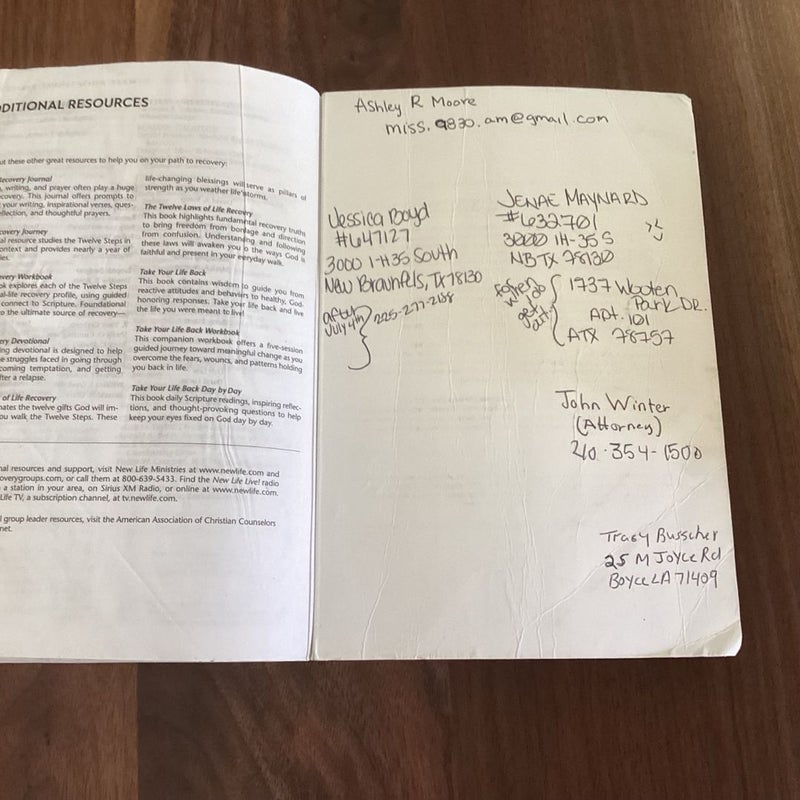 DITIONAL RESOURCES
ut these other great resources to help you on your path to recovery:
ecovery Journal
, writing, and prayer often play a huge
covery. This journal offers prompts to
your writing, inspirational verses, ques-
flection, and thoughtful prayers.
covery Journey
al resource studies the Twelve Steps in
ontext and provides nearly a year of
les.
very Workbook
ok explores each of the Twelve Steps
al-life recovery profile, using guided
connect to Scripture. Foundational
o the ultimate source of recovery—
ery Devotional
ing devotional is designed to help
e struggles faced in going through
coming temptation, and getting
fter a relapse.
of Life Recovery
nates the twelve gifts God will im-
ou walk the Twelve Steps. These
life-changing blessings will serve as pillars of
strength as you weather life's storms.
The Twelve Laws of Life Recovery
This book highlights fundamental recovery truths
to bring freedom from bondage and direction
from confusion. Understanding and following
these laws will awaken you to the ways God is
faithful and present in your everyday walk.
Take Your Life Back
This book contains wisdom to guide you from
reactive attitudes and behaviors to healthy, God-
honoring responses. Take your life back and live
the life you were meant to live!
Take Your Life Back Workbook
This companion workbook offers a five-session
guided journey toward meaningful change as you
overcome the fears, wounds, and patterns holding
you back in life.
Take Your Life Back Day by Day
This book daily Scripture readings, inspiring reflec-
tions, and thought-provoking questions to help
keep your eyes fixed on God day by day.
nal resources and support, visit New Life Ministries at www.newlife.com and
overygroups.com, or call them at 800-639-5433. Find the New Life Live! radio
a station in your area, on Sirius XM Radio, or online at www.newlife.com.
Life TV, a subscription channel, at tv.newlife.com.
l group leader resources, visit the American Association of Christian Counselors
net.
Ashley R Moore
miss.9830.am@gmail.com
Jessica Boyd
#647127
3000 I-H35 South
New Braunfels, TX 78130
after
July 4th
225-277-2188
JENAE MAYNARD
#632701
3000 IH-35 S
NB TX 78130
1737 Wooten
Park DR.
APT. 101
ATX 78757
John Winter
(Attorney)
210-354-1500
Tracy Busscher
25 M Joyce Rd
Boyce LA 71409